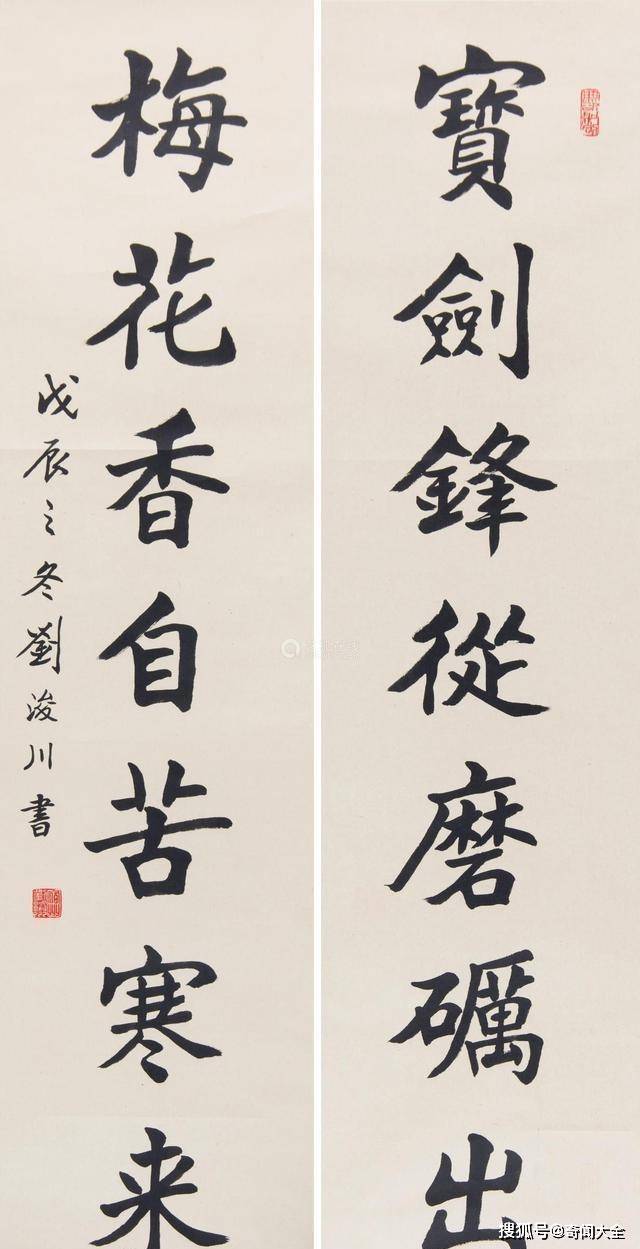 寶劍鋒從磨礪出
梅花香自苦寒来
戊辰之冬劉浚川書
搜狐号@奇闻大全